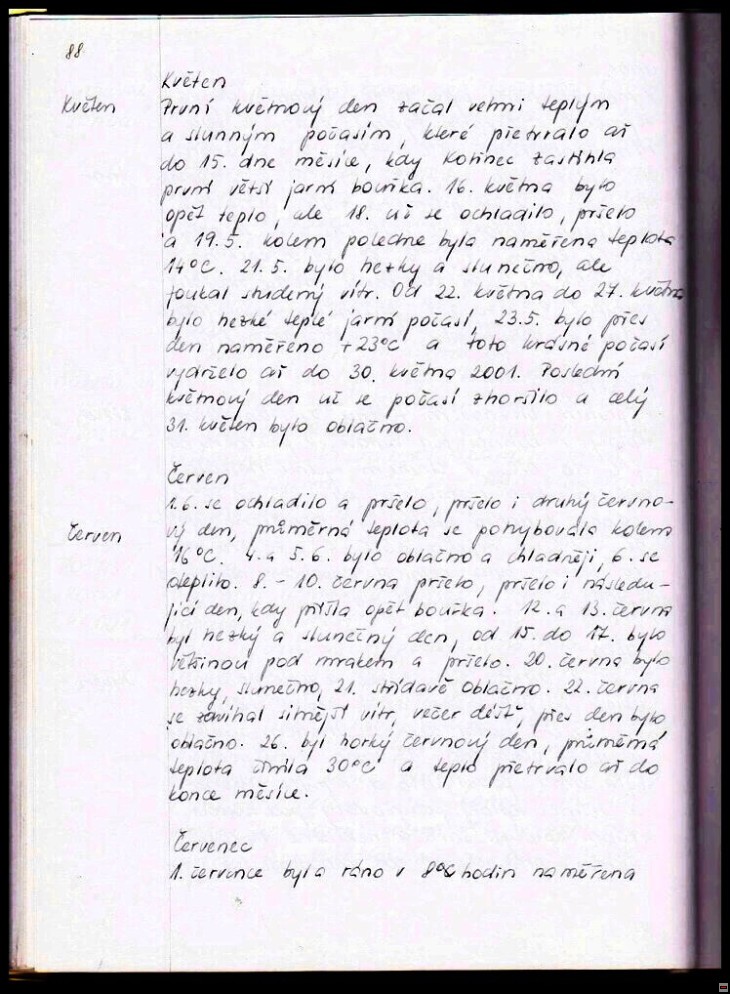 88
Květen
Květen
První květnový den začal velmi teplým
a slunným počasím, které přetrvalo až
do 15. dne měsíce, kdy Kořinec zastihla
první větší jarní bouřka. 16. května bylo
opět teplo, ale 18. už se ochladilo, pršelo
a 19.5. kolem poledne byla naměřena teplota
14°C. 21.5. bylo hezky a slunečno, ale
foukal studený vítr. Od 22. května do 27. května
bylo hezké teplé jarní počasí, 23.5. bylo přes
den naměřeno +23°C a toto krásné počasí
vydrželo až do 30. května 2001. Poslední
květnový den už se počasí zhoršilo a celý
31. květen bylo oblačno.
Červen
Červen
1.6. se ochladilo a pršelo, pršelo i druhý červno-
vý den, průměrná teplota se pohybovala kolem
16°C. 4. a 5.6. bylo oblačno a chladněji, 6. se
oteplilo. 8. - 10. června pršelo, pršelo i následu-
jící den, kdy přišla opět bouřka. 12. a 13. června
byl hezký a slunečný den, od 15. do 17. bylo
většinou pod mrakem a pršelo. 20. června bylo
hezky, slunečno, 21. střídavě oblačno. 22. června
se zdvihal silnější vítr, večer déšť, přes den bylo
oblačno. 26. byl horký červnový den, průměrná
teplota činila 30°C a teplo přetrvalo až do
konce měsíce.
Červenec
1. července byla ráno v 8 hodin naměřena